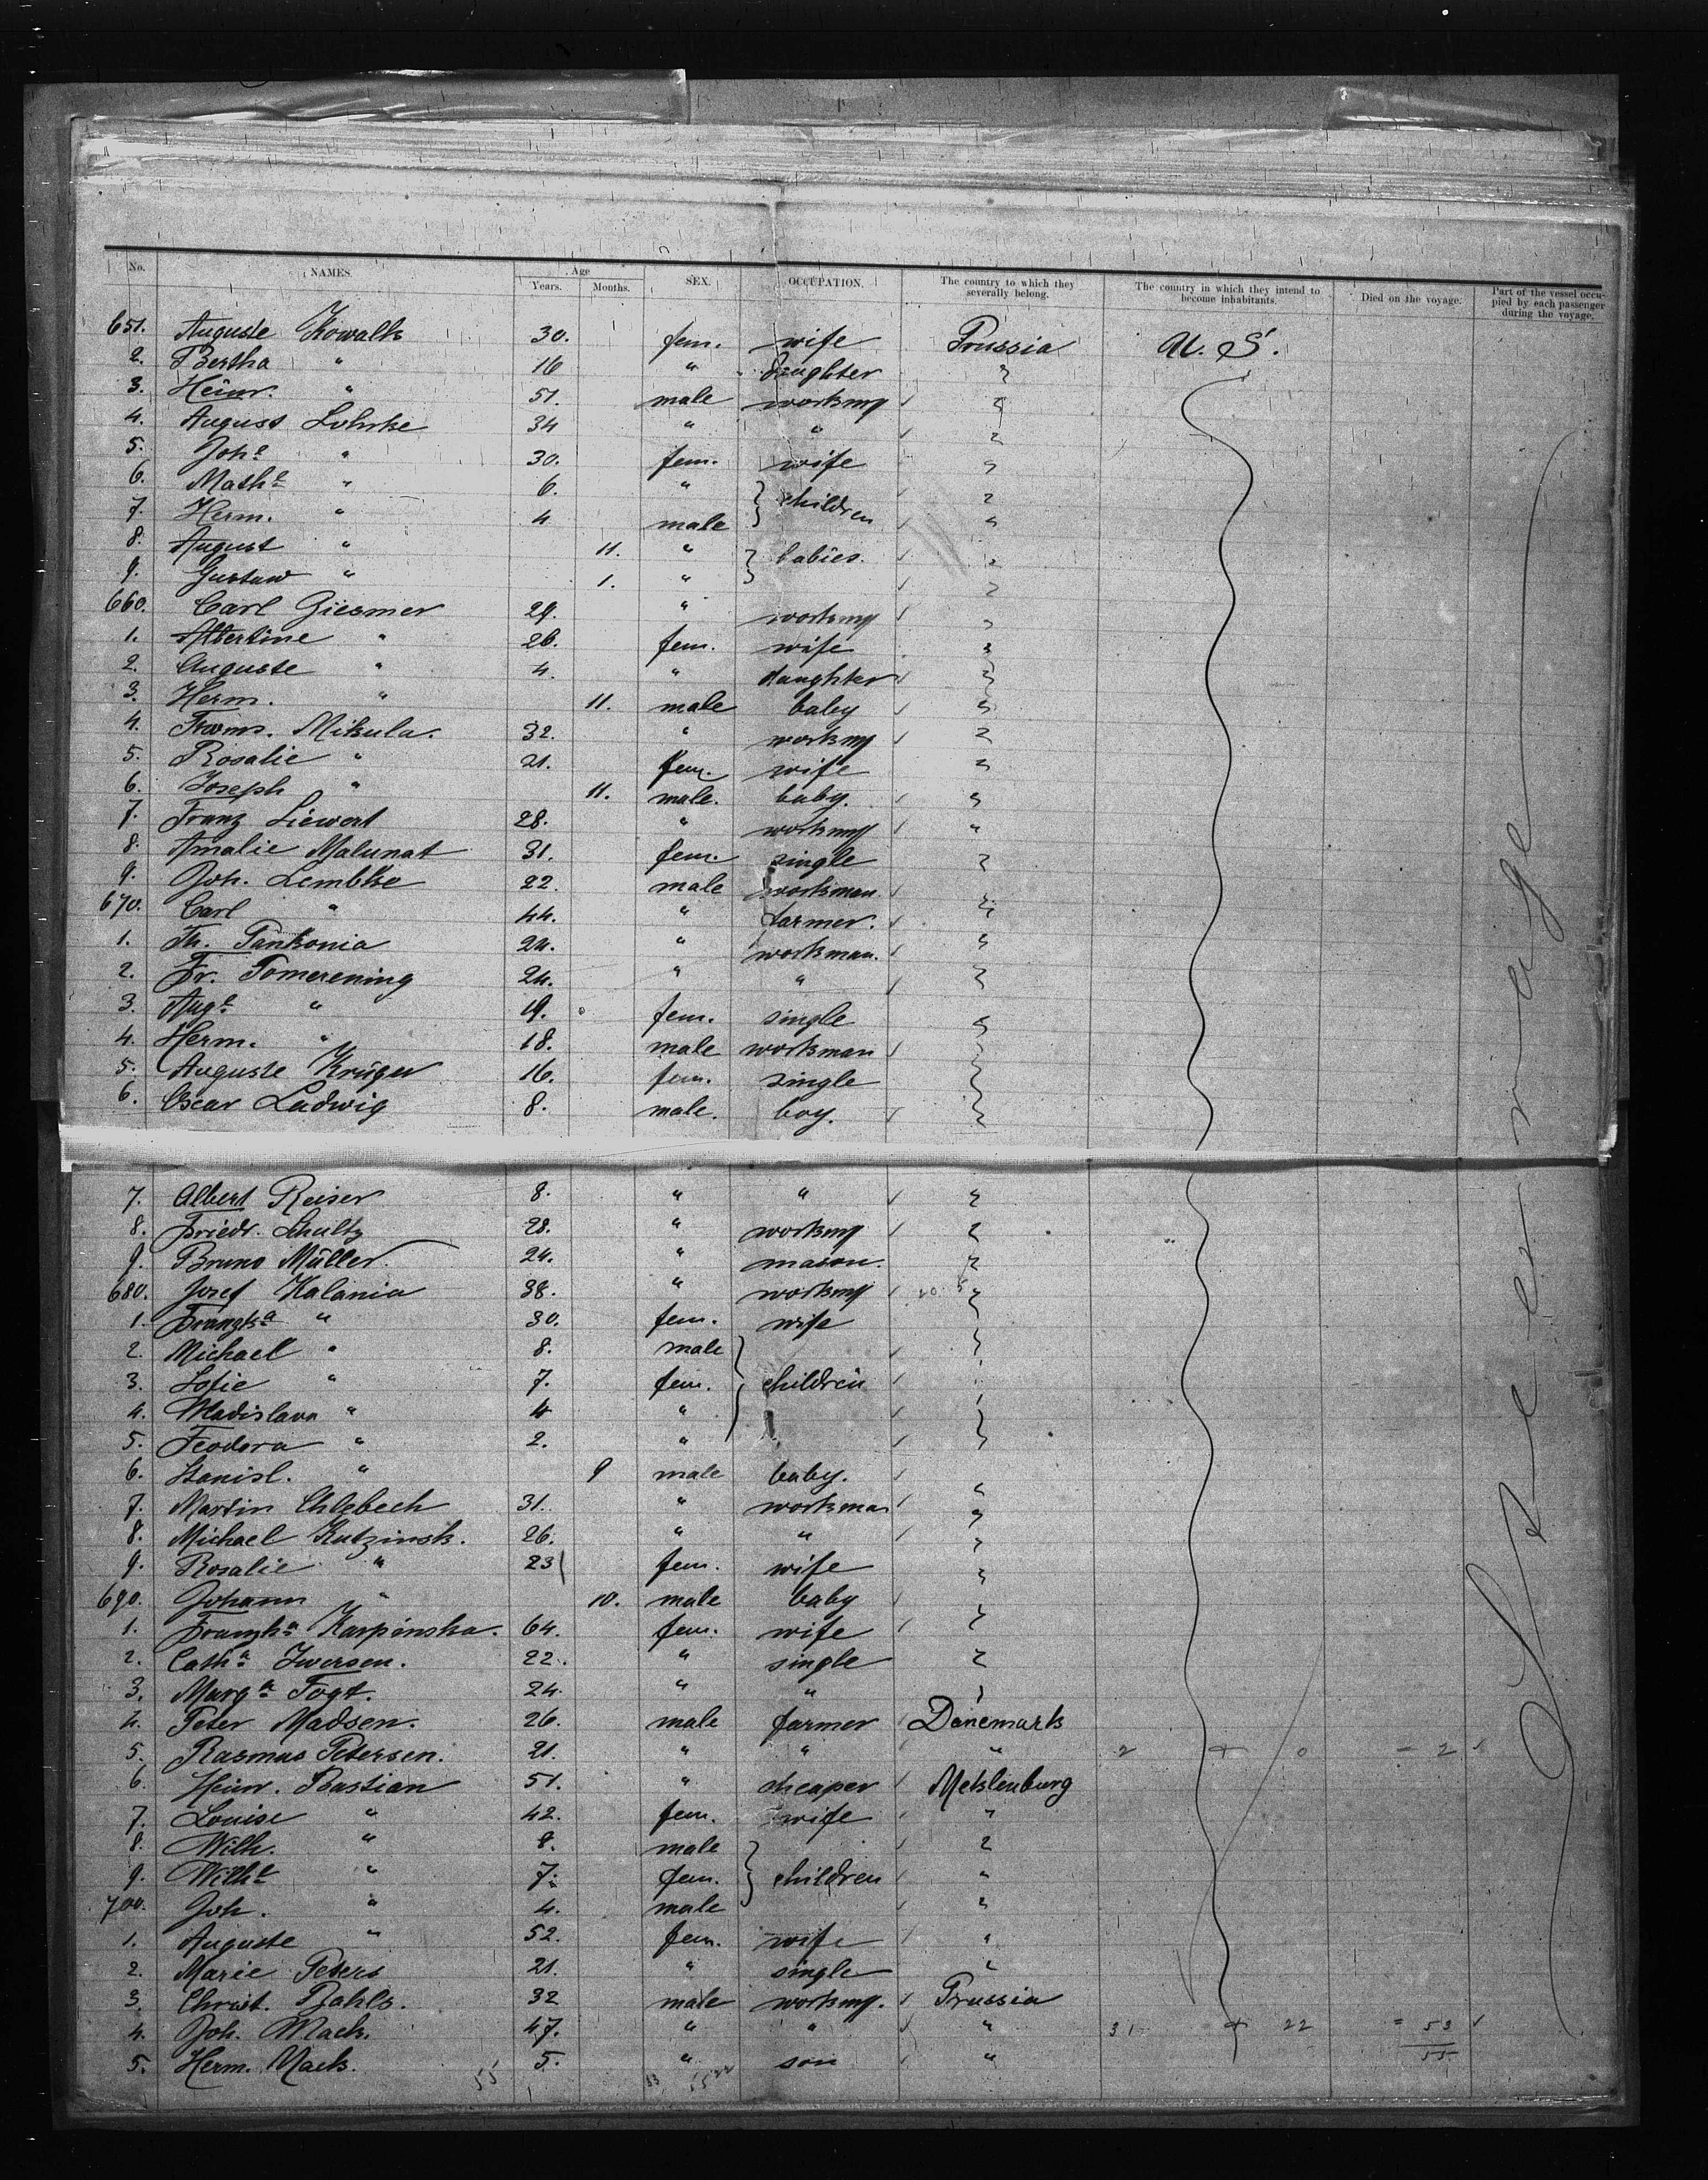 No. NAMES. Age Years. Months. SEX. OCCUPATION. The country to which they severally belong. The country in which they intend to become inhabitants. Died on the voyage. Part of the vessel occupied by each passenger during the voyage.
651. Auguste Kowalk 30. fem. wife Prussia U. S.
2. Bertha " 16 " daughter "
3. Heinr. " 51. male workmn "
4. August Lohrke 34 " " "
5. Johe " 30. fem. wife "
6. Mathe " 6. " children "
7. Herm. " 4 male "
8. August " 11. " babies. "
9. Gustaw " 1. " "
660. Carl Giesmer 29. " workmn "
1. Albertine " 26. fem. wife "
2. Auguste " 4. " daughter "
3. Herm. " 11. male baby "
4. Mikula. 32. " workmn "
5. Rosalie " 21. fem. wife "
6. Joseph " 11. male. baby. "
7. Franz Liewert 28. " workmn "
8. Amalie Malunat 31. fem. single "
9. Joh. Lembke 22. male workman "
670. Carl " 44. " farmer. "
1. Th. Pankonia 24. " workman. "
2. Fr. Pomerening 24. " " "
3. Auge " 19. fem. single "
4. Herm. " 18. male workman "
5. Auguste Krüger 16. fem. single "
6. Oscar Ladwig 8. male. boy. "
7. Albert Reiser 8. " " "
8. Friedr. Schultz 28. " workmn "
9. Bruno Müller. 24. " mason. "
680. Josef Kalania 38. " workmn "
1. Franzka " 30. fem. wife "
2. Michael " 8. male "
3. Sofie " 7. fem. children "
4. Wladislava " 4 " "
5. Feodora " 2. " "
6. Stanisl. " 9 male baby.
7. Martin Chlebech 31. " workman "
8. Michael Kutzinsk. 26. " " "
9. Rosalie " 23 fem. wife "
690. Johann " 10. male baby "
1. Franzka Karpinska. 64. fem. wife "
2. Catha Iwersen. 22. " single "
3. Marga Vogt. 24. " " "
4. Peter Madsen. 26. male farmer Danemark
5. Rasmus Petersen. 21. " " " 2 + 0 = 2
6. Heinr. Bastian 51. " Meklenburg
7. Louise " 42. fem. wife "
8. Wilh. " 8. male "
9. Wilhe " 7. fem. children "
700. Joh. " 4. male "
1. Auguste " 52. fem. wife "
2. Marie Peters 21. " single "
3. Christ. Dahls. 32 male workmn. Prussia
4. Joh. Mack. 47. " " " 31 + 22 = 53
5. Herm. Mack. 5. " son " 55
55
Steerage